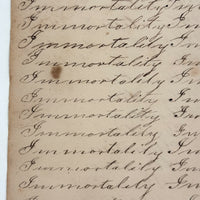 Immortality Im
Immortality Im
Immortality Im
Immortality Im
Immortality Im
Immortality Im
Immortality Im
Immortality Im
Immortality Im
Immortality Im
Immortality Im
Immortality Im